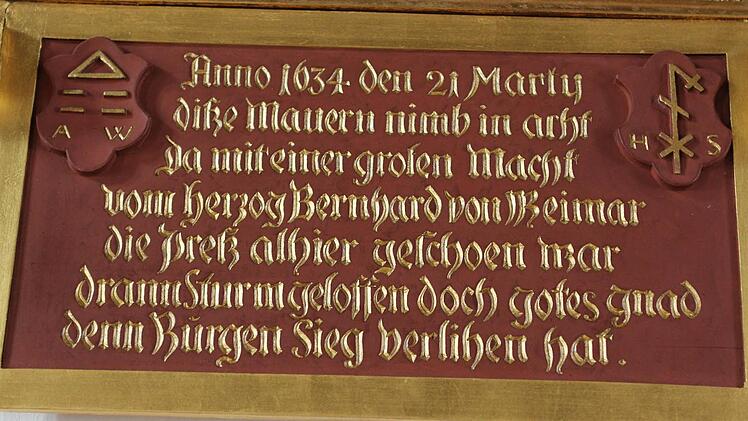 Anno 1634. den 21 Marty
diße Mauern nimb in acht
Da mit einer grosen Macht
vom herzog Bernhard von Weimar
die Preß alhier geschoen war
drann Sturm gelossen doch gotes gnad
denn Bürgen Sieg verlihen hat.
A W
H S